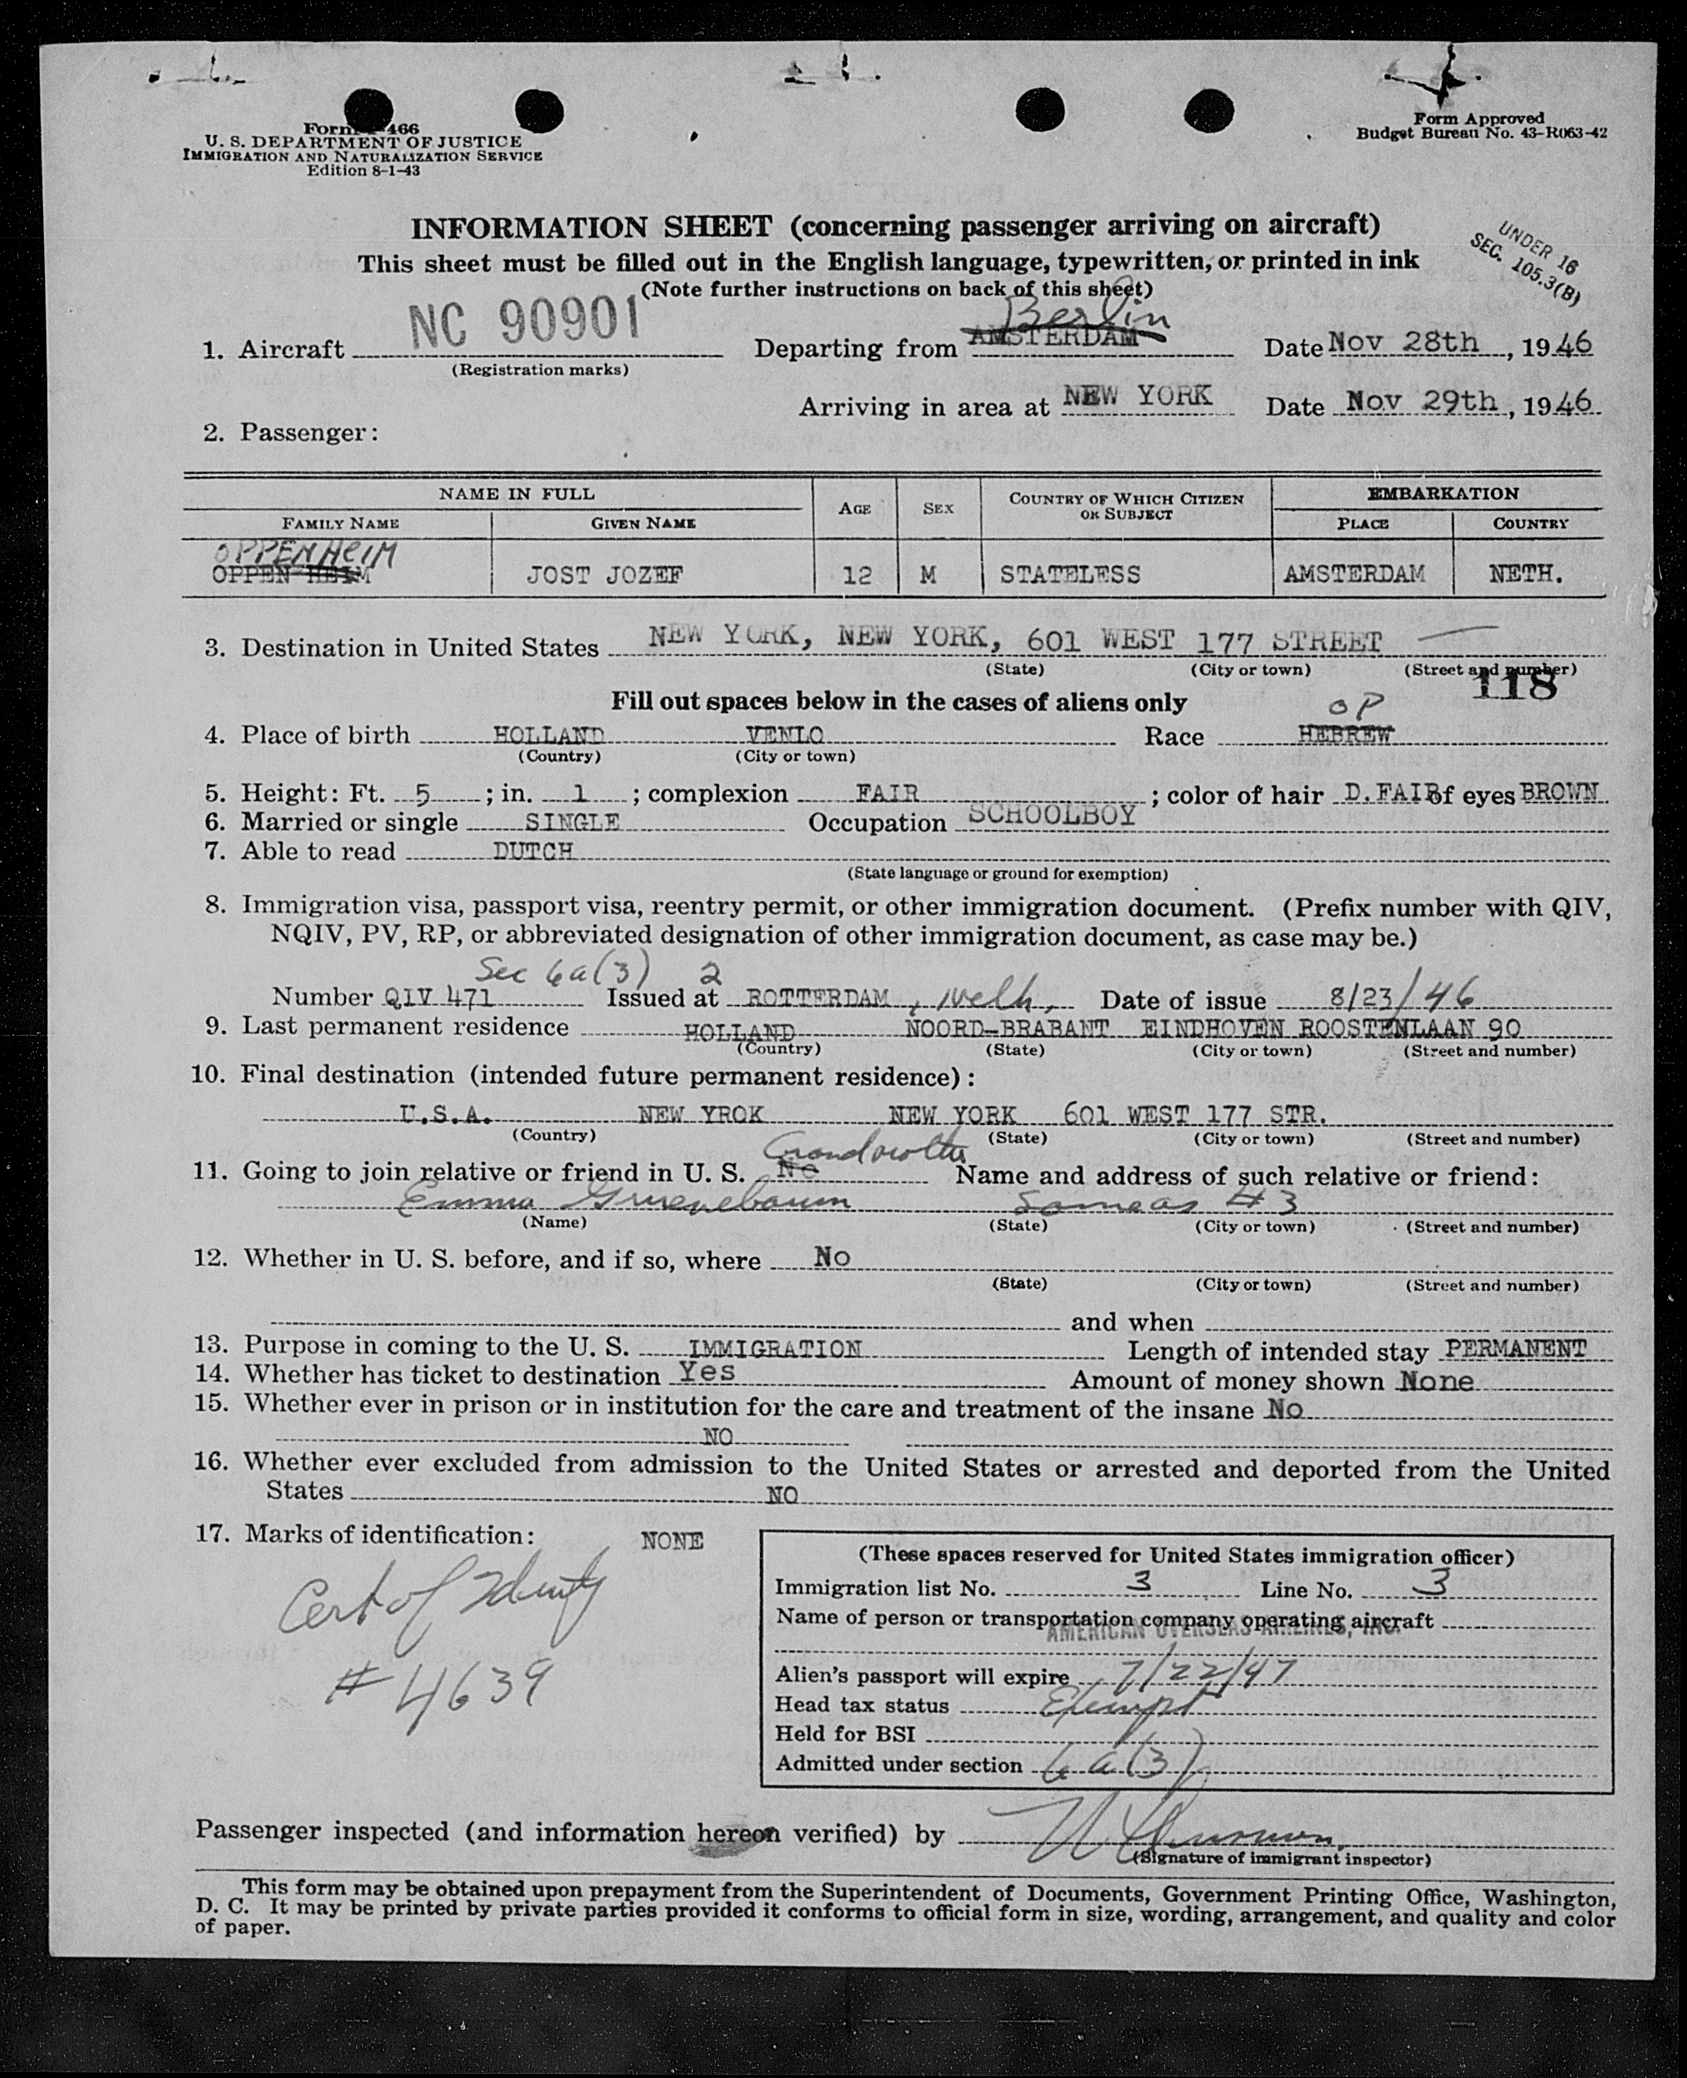 Form 466
U. S. DEPARTMENT OF JUSTICE
IMMIGRATION AND NATURALIZATION SERVICE
Edition 8-1-43
Form Approved
Budget Bureau No. 43-R063-42
INFORMATION SHEET (concerning passenger arriving on aircraft)
This sheet must be filled out in the English language, typewritten, or printed in ink
(Note further instructions on back of this sheet)
UNDER 16
SEC. 105.3(B)
Berlin
1. Aircraft NC 90901 Departing from AMSTERDAM Date Nov 28th, 1946
(Registration marks)
Arriving in area at NEW YORK Date Nov 29th, 1946
2. Passenger:
NAME IN FULL AGE SEX COUNTRY OF WHICH CITIZEN OR SUBJECT EMBARKATION
FAMILY NAME GIVEN NAME PLACE COUNTRY
OPPENHEIM
OPPEN HEIM JOST JOZEF 12 M STATELESS AMSTERDAM NETH.
3. Destination in United States NEW YORK, NEW YORK, 601 WEST 177 STREET
(State) (City or town) (Street and number)
118
Fill out spaces below in the cases of aliens only
OP
4. Place of birth HOLLAND VENLO Race HEBREW
(Country) (City or town)
5. Height: Ft. 5; in. 1; complexion FAIR; color of hair D.FAIR of eyes BROWN
6. Married or single SINGLE Occupation SCHOOLBOY
7. Able to read DUTCH
(State language or ground for exemption)
8. Immigration visa, passport visa, reentry permit, or other immigration document. (Prefix number with QIV,
NQIV, PV, RP, or abbreviated designation of other immigration document, as case may be.)
Sec 6a(3) 2
Number QIV 471 Issued at ROTTERDAM, Neth, Date of issue 8/23/46
9. Last permanent residence HOLLAND NOORD-BRABANT EINDHOVEN ROOSTENLAAN 90
(Country) (State) (City or town) (Street and number)
10. Final destination (intended future permanent residence):
U.S.A. NEW YROK NEW YORK 601 WEST 177 STR.
(Country) (State) (City or town) (Street and number)
Grandmother
11. Going to join relative or friend in U. S. No Name and address of such relative or friend:
Emma Gruenebaum Same as #3
(Name) (State) (City or town) (Street and number)
12. Whether in U. S. before, and if so, where No
(State) (City or town) (Street and number)
and when
13. Purpose in coming to the U. S. IMMIGRATION Length of intended stay PERMANENT
14. Whether has ticket to destination Yes Amount of money shown None
15. Whether ever in prison or in institution for the care and treatment of the insane No
NO
16. Whether ever excluded from admission to the United States or arrested and deported from the United
States NO
17. Marks of identification: NONE
Cert of Identity
# 4639
(These spaces reserved for United States immigration officer)
Immigration list No. 3 Line No. 3
Name of person or transportation company operating aircraft
AMERICAN OVERSEAS AIRLINES, INC.
Alien's passport will expire 7/22/47
Head tax status Exempt
Held for BSI
Admitted under section 6 a (3)
Passenger inspected (and information hereon verified) by
(Signature of immigrant inspector)
This form may be obtained upon prepayment from the Superintendent of Documents, Government Printing Office, Washington,
D. C. It may be printed by private parties provided it conforms to official form in size, wording, arrangement, and quality and color
of paper.